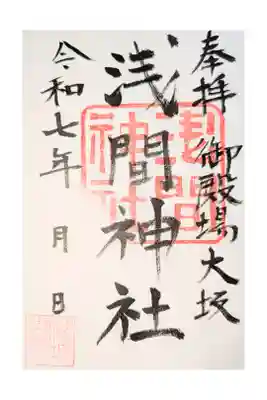 奉拝 御殿場大坂
浅間神社
令和七年 月 日
浅間神社